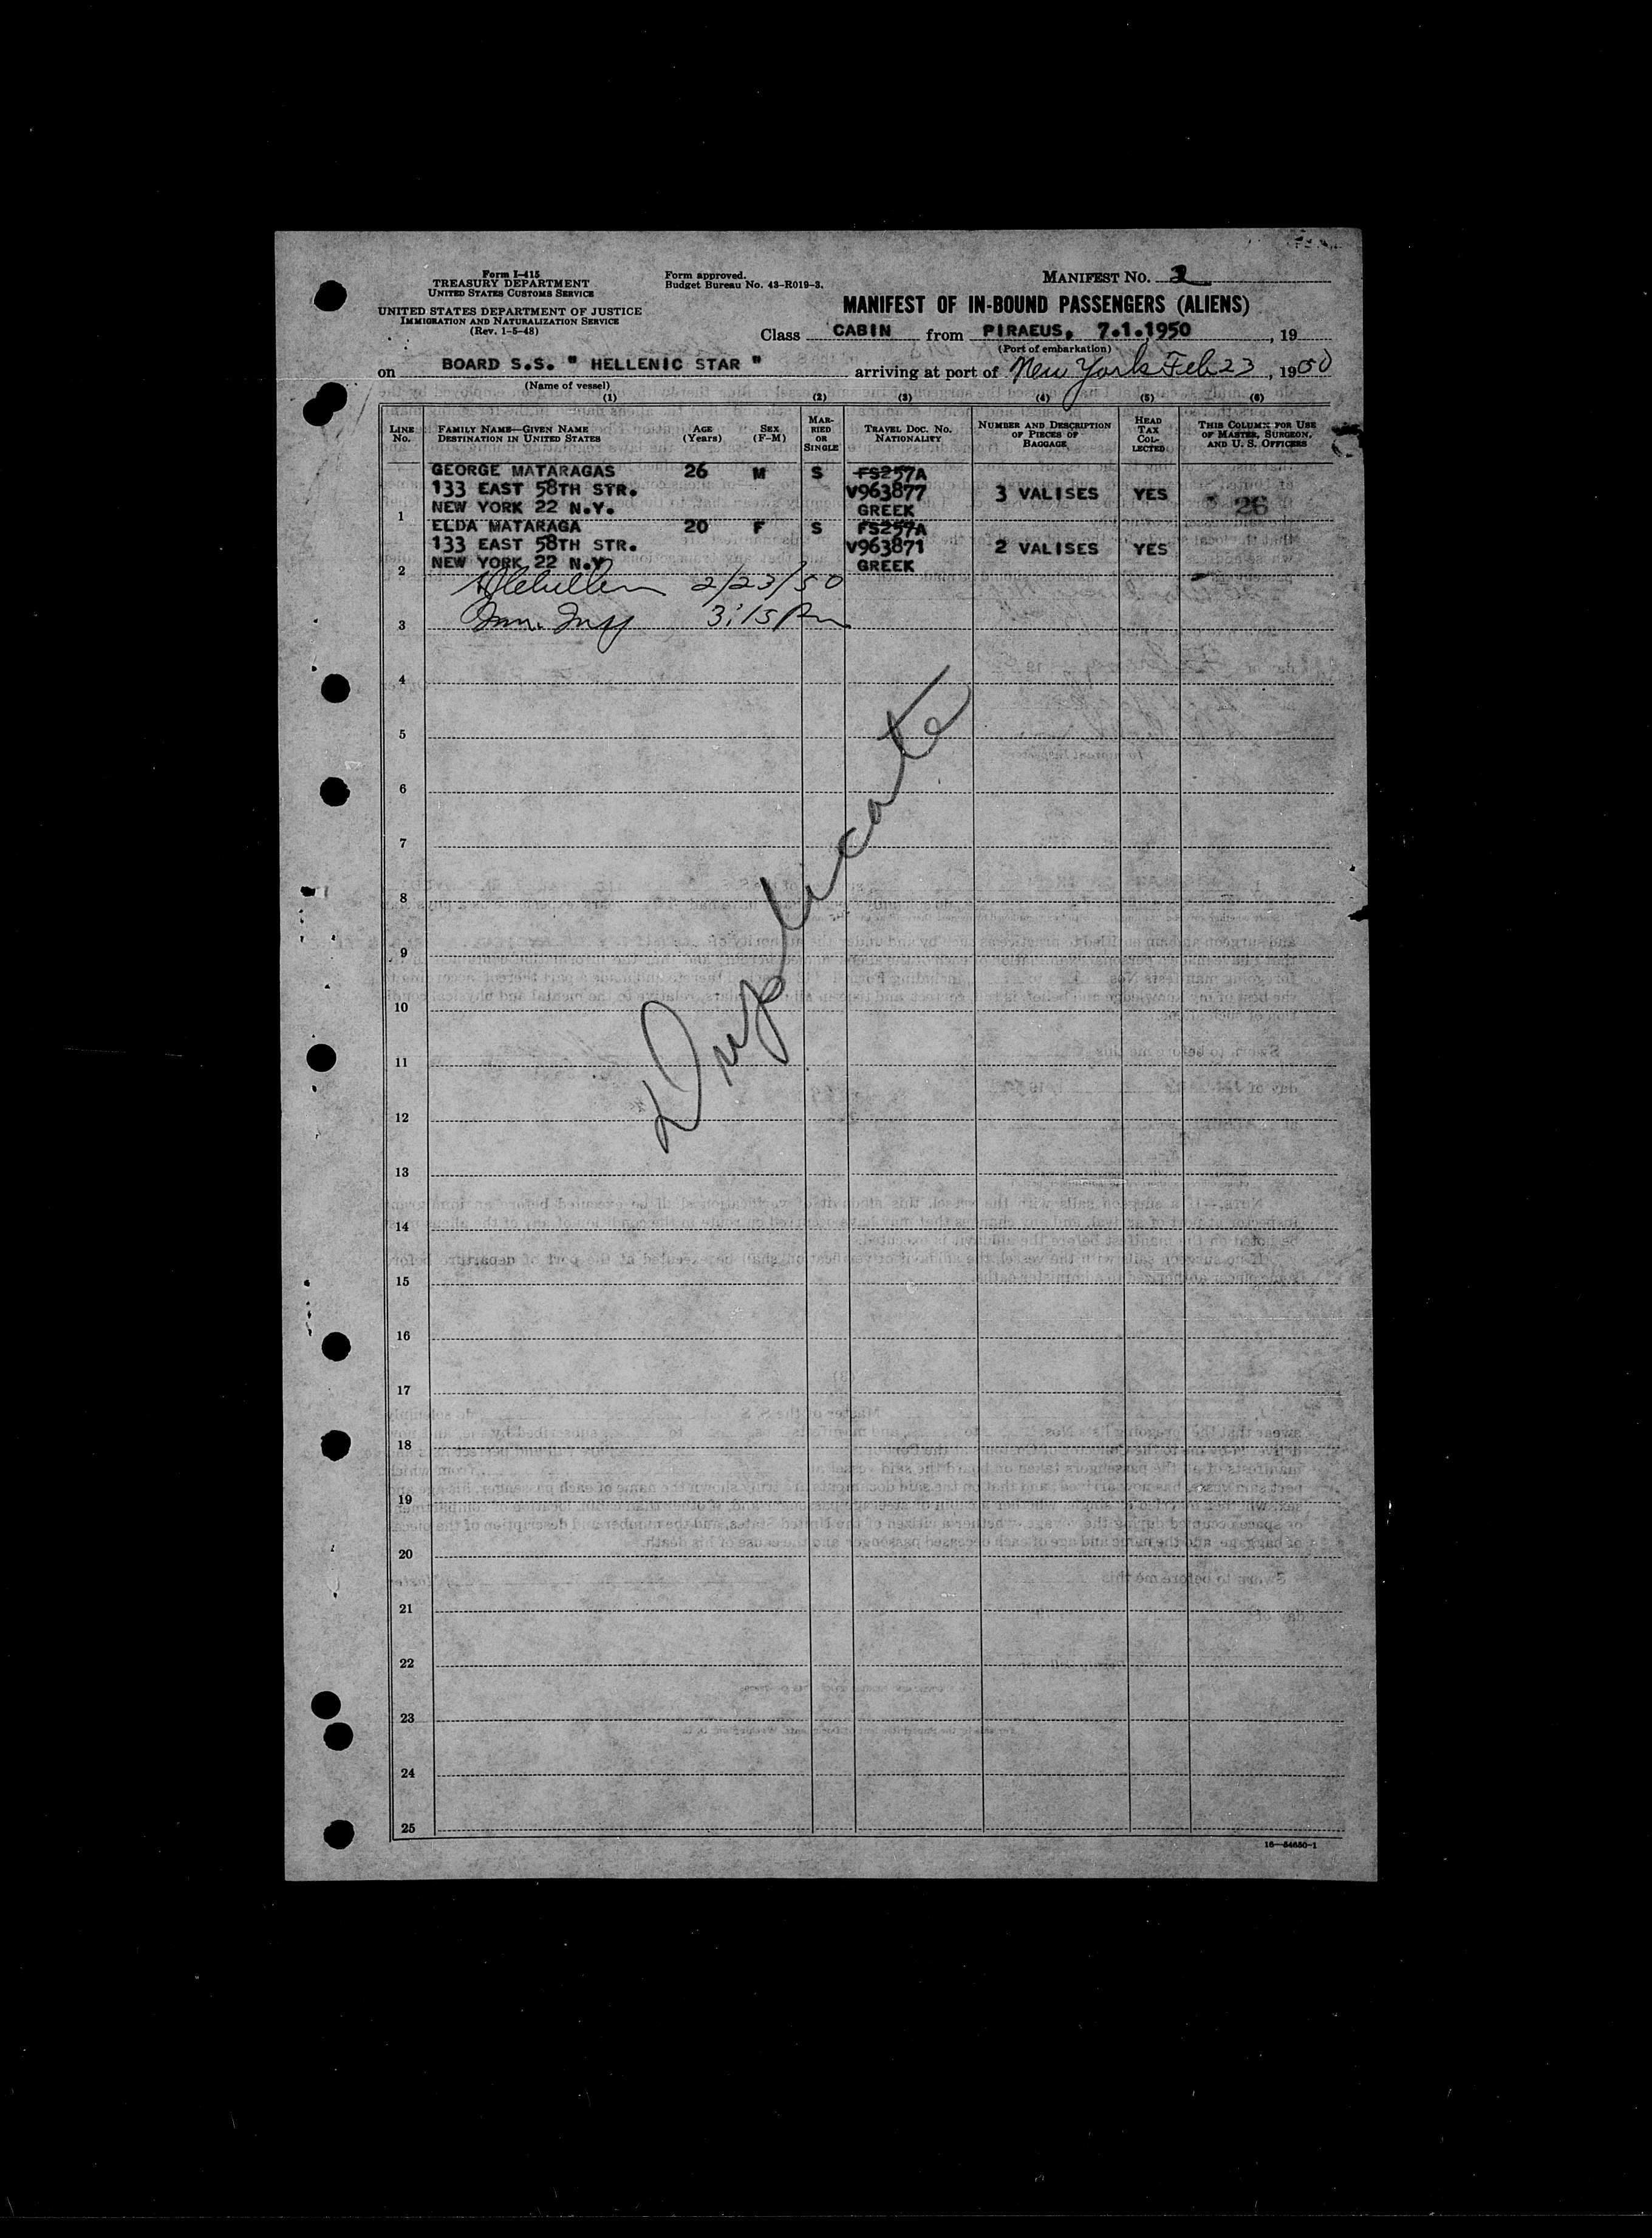 Form I-415
TREASURY DEPARTMENT
UNITED STATES CUSTOMS SERVICE
UNITED STATES DEPARTMENT OF JUSTICE
IMMIGRATION AND NATURALIZATION SERVICE
(Rev. 1-5-48)
Form approved.
Budget Bureau No. 43-R019-3.
MANIFEST NO. 2
MANIFEST OF IN-BOUND PASSENGERS (ALIENS)
Class CABIN from PIRAEUS, 7.1.1950, 19
(Port of embarkation)
on BOARD S.S. " HELLENIC STAR " arriving at port of New York Feb 23, 1950
(Name of vessel)
(1) (2) (3) (4) (5) (6)
LINE No. FAMILY NAME—GIVEN NAME DESTINATION IN UNITED STATES AGE (Years) SEX (F-M) MARRIED OR SINGLE TRAVEL DOC. NO. NATIONALITY NUMBER AND DESCRIPTION OF PIECES OF BAGGAGE HEAD TAX COLLECTED THIS COLUMN FOR USE OF MASTER, SURGEON, AND U. S. OFFICERS
GEORGE MATARAGAS 26 M S FS257A
133 EAST 58TH STR. V963877 3 VALISES YES
1 NEW YORK 22 N.Y. GREEK 26
ELDA MATARAGA 20 F S FS257A
133 EAST 58TH STR. V963871 2 VALISES YES
2 NEW YORK 22 N.Y GREEK
2/23/50
3 Imm. Insp 3:15 Pm
4
5
6
7
8
9
10
11
12
13
14
15
16
17
18
19
20
21
22
23
24
25
Duplicate
16—54650-1